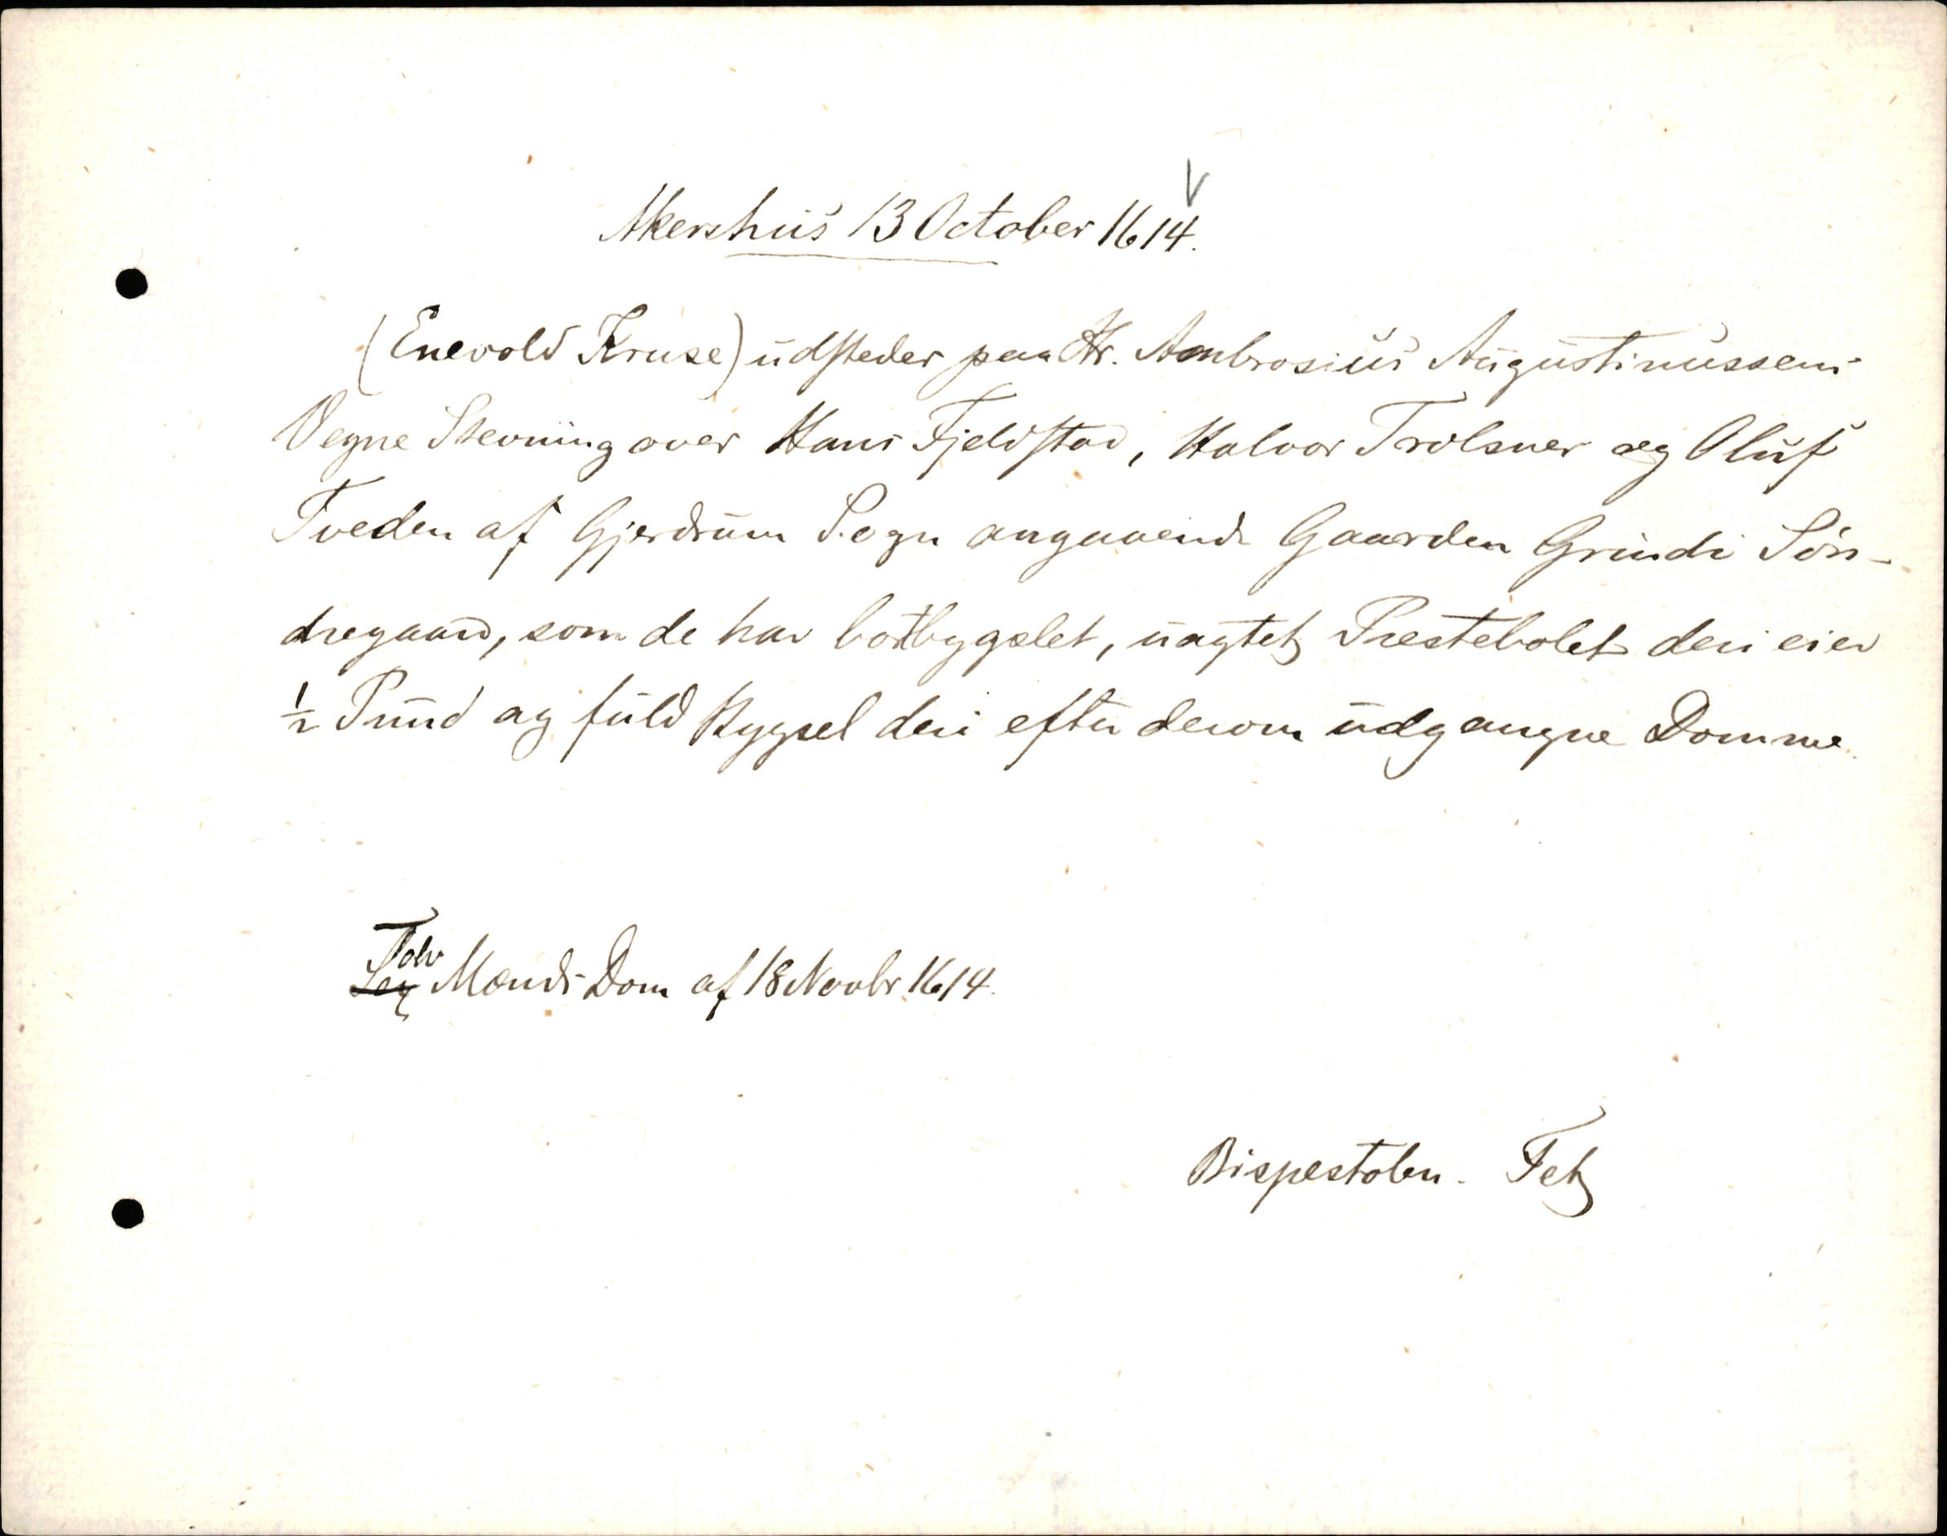 Akershus 13 October 1614.
(Enevold Kruse) udsteder paa Hr. Ambrosius Augustinussens
Vegne Stevning over Hans Fjeldstad, Halvor Trolsner og Oluf
Tveden af Gjerdrum Sogn angaaende Gaarden Grindi Søn-
dregaard, som de har bortbygslet, uagtet Prestebolet deri eier
½ Pund og fuld Bygsel deri efter derom udgangne Domme.
Tolv
Sex Mænds Dom af 18 Novbr 1614.
Bispestolen. Fet